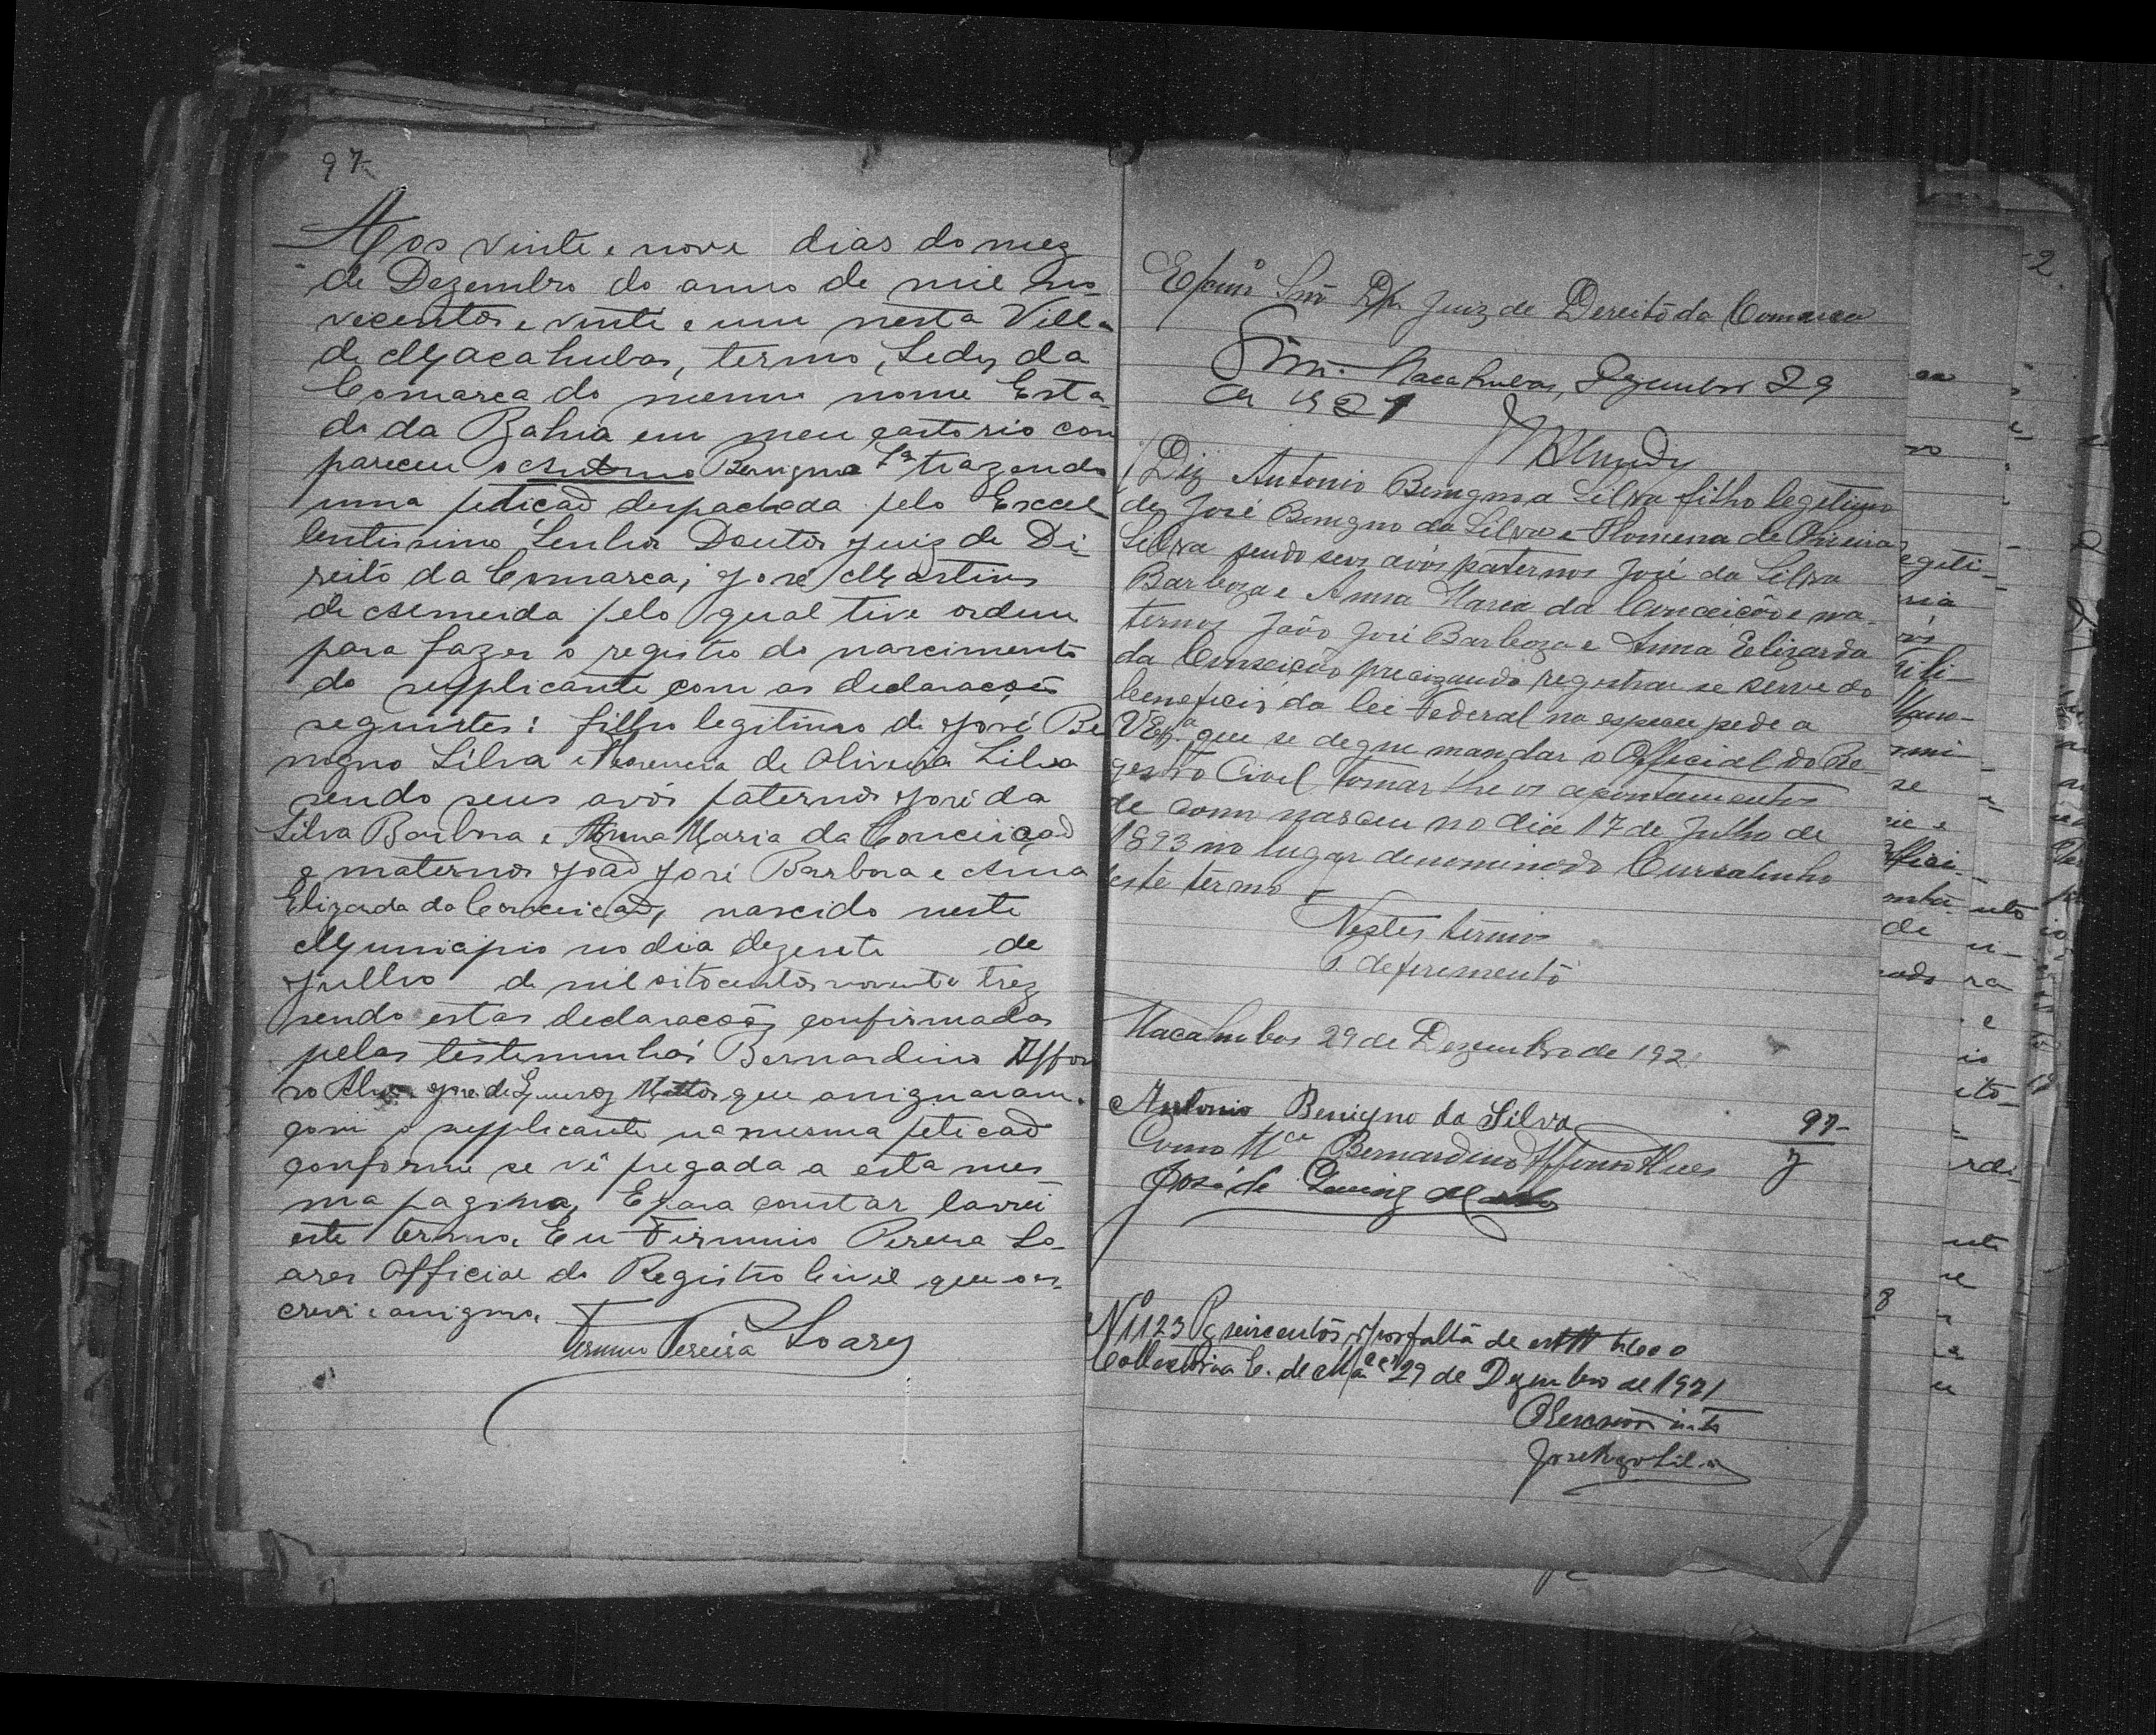 97
Aos vinte e nove dias do mez
de Dezembro do anno de mil no-
vecentos e vinte e um nesta Villa
de Macahubas, termo, Sede da
Comarca do mesmo nome Esta-
do da Bahia em meu cartorio com
pareceu o Antonio Benigno Sa trazendo
uma petição despachada pelo Excel
lentissimo Senhor Doutor Juiz de Di-
reito da Comarca, José Martins
de Almeida pelo qual tive ordem
para fazer o registro do nascimento
do supplicante com as declarações
seguintes: filho legitimo de José Be
nigno Silva e de Oliveira Silva
sendo seus avós paternos José da
Silva Barbosa e Anna Maria da Conceição
e maternos João José Barbosa e Anna
Elizarda da Conceição, nascido neste
Municipio no dia dezesete de
Julho de mil oitocentos noventa trez
sendo estas declarações confirmadas
pelas testemunhas Bernardino Affon
so Alves José de Mattos que assignaram
com o supplicante na mesma petição
conforme se vê pregada a esta mes
ma pagina, E para constar lavrei
este termo. Eu Firmino Pereira So-
ares Official do Registro Civil que es-
crevi e assigno.
Firmino Pereira Soares
Exmo Snr Dr. Juiz de Dereito da Comarca
Sim. Macahubas, Dezembro 29
de 1921
Diz Antonio Benigno a Silva filho legitimo
de José Benigno da Silva e de Oliveira
Silva sendo seus avós paternos José da Silva
Barboza e Anna Maria da Conceição e ma-
ternos João José Barboza e Anna Elizarda
da Conseição precizando registrar se serve do
beneficio da lei Federal na especie pede a
V Exa que se degne mandar o Official do Re-
gestro Civel tomar lhe os apontamentos
de como nasceu no dia 17 de Julho de
1893 no lugar denominado Cursalinho
deste termo
Nestes termos
P. deferemento
Macahubas 29 de Dezembro de 192
Antonio Benigno da Silva
Como Bernardino Affonso Alves
José de
97
No 1123 Pg seiscentos rs por falta de
Collectoria E. de 29 de Dezembro de 1921
8
2